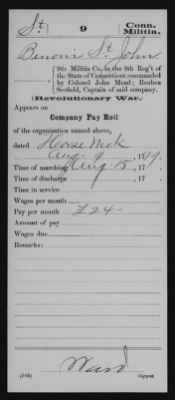 St. 9 Conn. Militia.
Benoni St. John
9th Militia Co. in the 9th Reg't of the State of Connecticut commanded by Colonel John Mead; Reuben Scofield, Captain of said company.
(Revolutionary War.)
Appears on
Company Pay Roll
of the organization named above,
dated Horse Neck
Aug. 9, 1779.
Time of marching Aug 15, 17
Time of discharge , 17
Time in service
Wages per month
Pay per month £24-
Amount of pay
Wages due
Remarks:
Ward
Copyist.